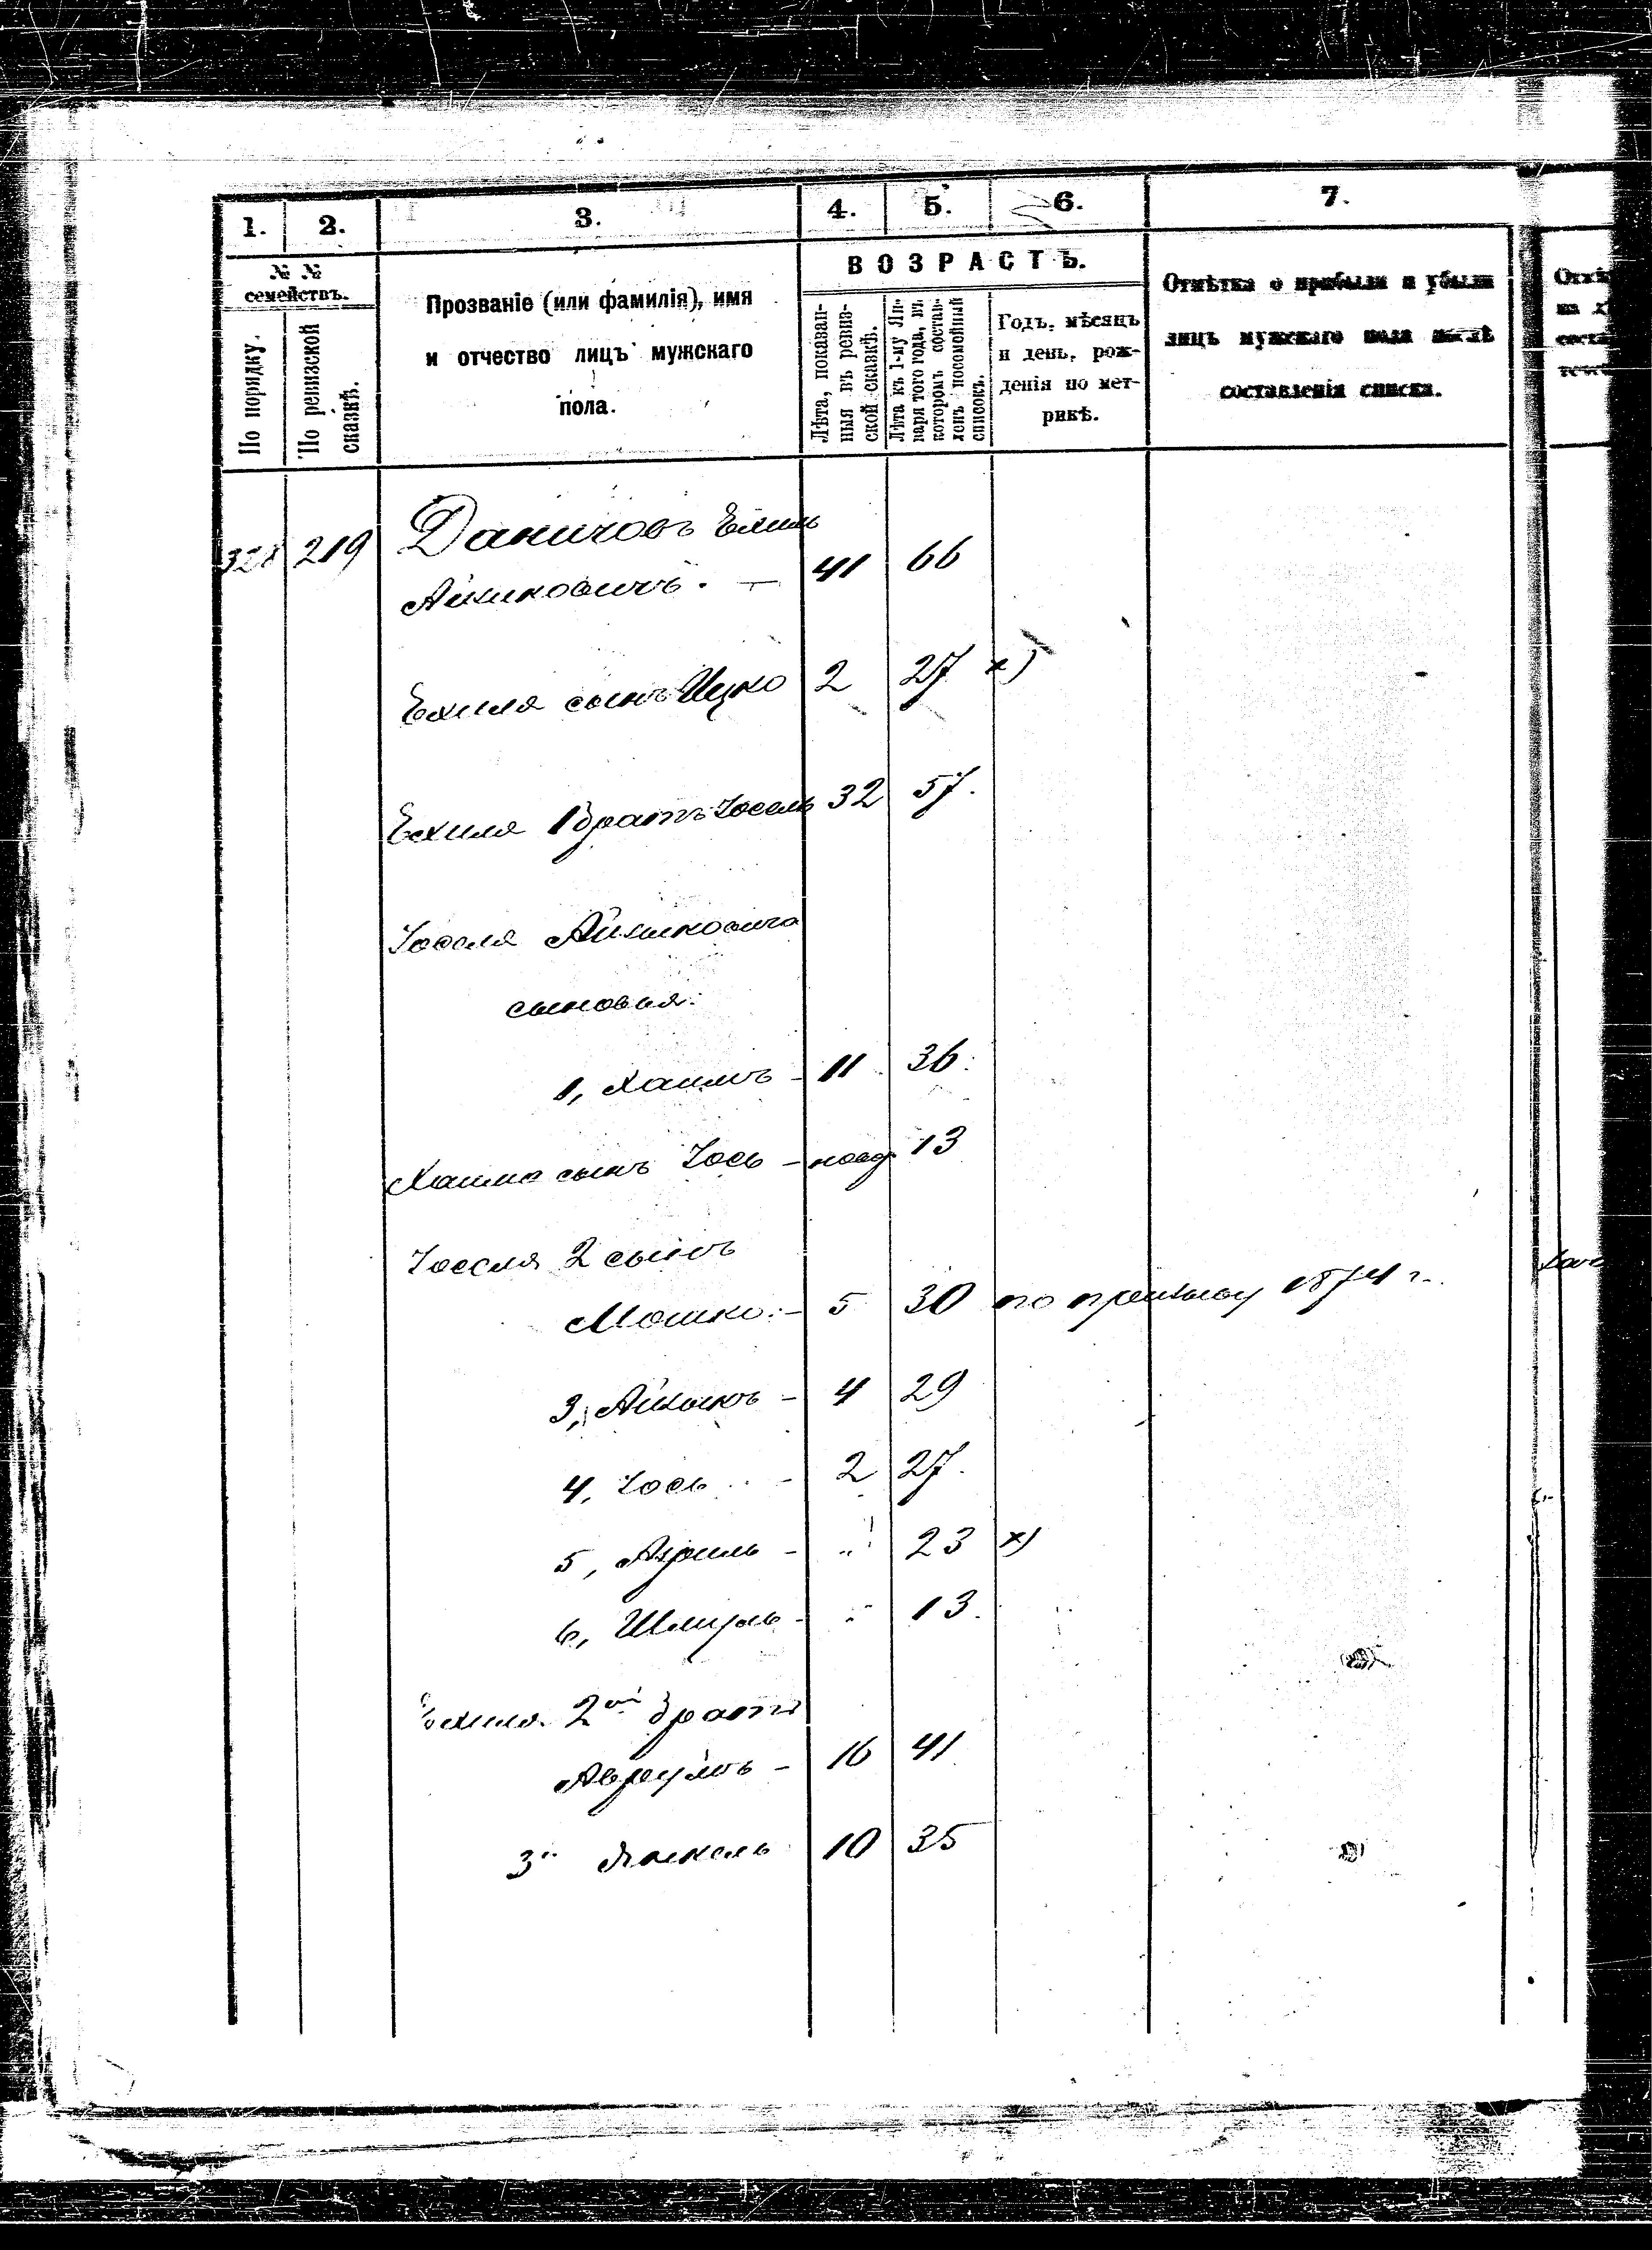 1. 2. 3. 4. 5. 6. 7.
№ № семействъ.
По порядку.
По ревизской сказкѣ.
Прозваніе (или фамилія), имя
и отчество лицъ мужскаго
пола.
ВОЗРАСТЪ.
Лѣта, показан-
ныя въ ревиз-
ской сказкѣ.
Лѣта къ 1-му Ян-
варя того года, въ
которомъ состав-
ленъ посемейный
списокъ.
Годъ, мѣсяцъ
и день, рож-
денія по мет-
рикѣ.
Отмѣтка о прибыли и убыли
лицъ мужскаго пола послѣ
составленія списка.
328 219 Даничовъ Ехиль
Айзиковичъ. — 41 66
Ехиля сынъ Ицко 2 27 х)
Ехиля 1 братъ Іосель 32 57.
Іоселя Айзиковича
сыновья:
1, Хаимъ - 11 36
Хаима сынъ Іось - новор. 13
Іоселя 2 сынъ
Мошко - 5 30 по призыву 1874 г.
3, Айзикъ - 4 29
4, Іось - 2 27.
5, Азриль - " 23 х)
6, Шмуль - " 13.
Ехиля 2ой братъ
Аврумъ - 16 41
3й Янкель 10 35